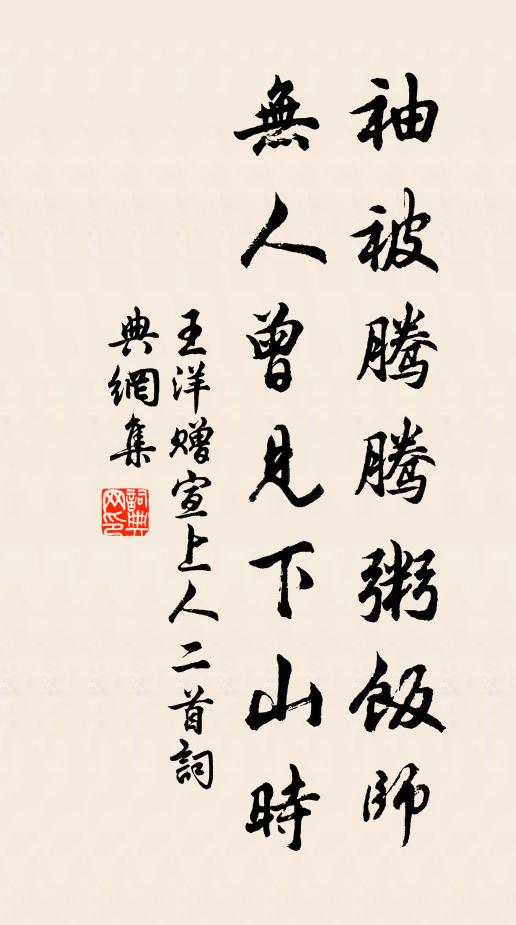 袖被騰騰粥飯師
無人曾見下山時
王洋贈宣上人二首詞
典網集
詞典
网印